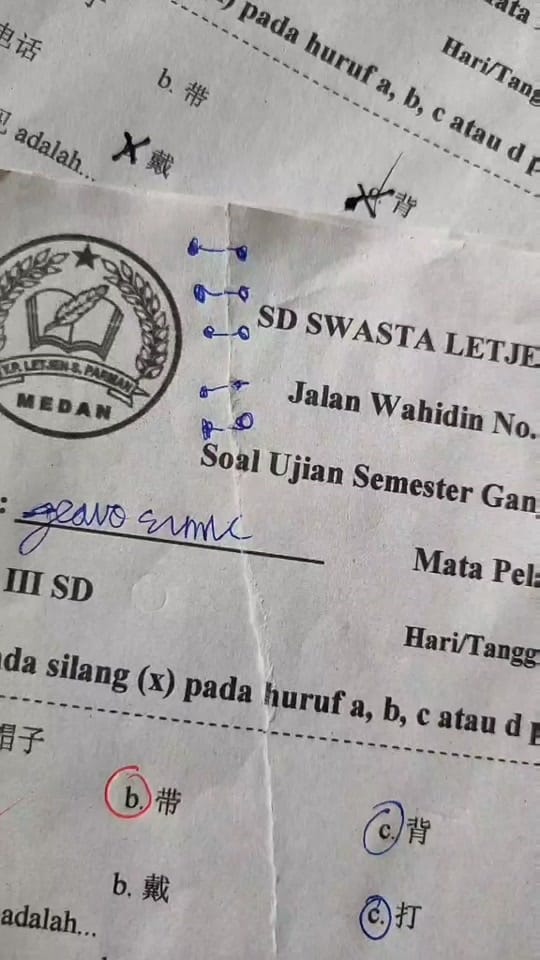 ata
) pada huruf a, b, c atau d p
Hari/Tangg
电话
b. 带
adalah...
戴
背
Y.P. LETJEN S. PARMAN
MEDAN
SD SWASTA LETJE
Jalan Wahidin No.
Soal Ujian Semester Gan
:
Mata Pela
III SD
Hari/Tangg
da silang (x) pada huruf a, b, c atau d p
帽子
b. 带
c. 背
b. 戴
c. 打
adalah...